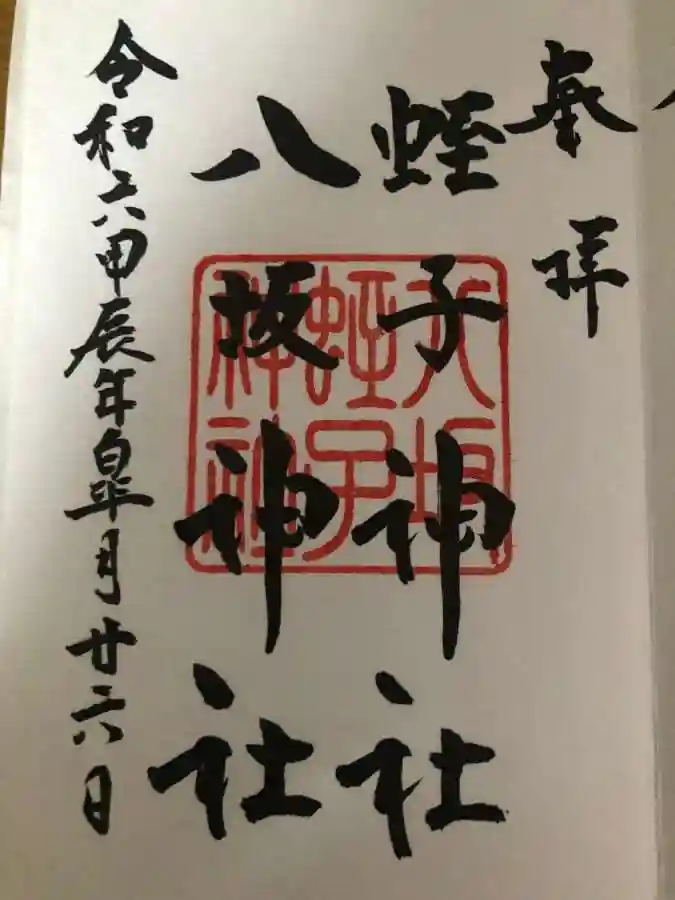 奉拝
蛭子神社
八坂神社
令和六甲辰年皐月廿六日
八坂
蛭子
神社